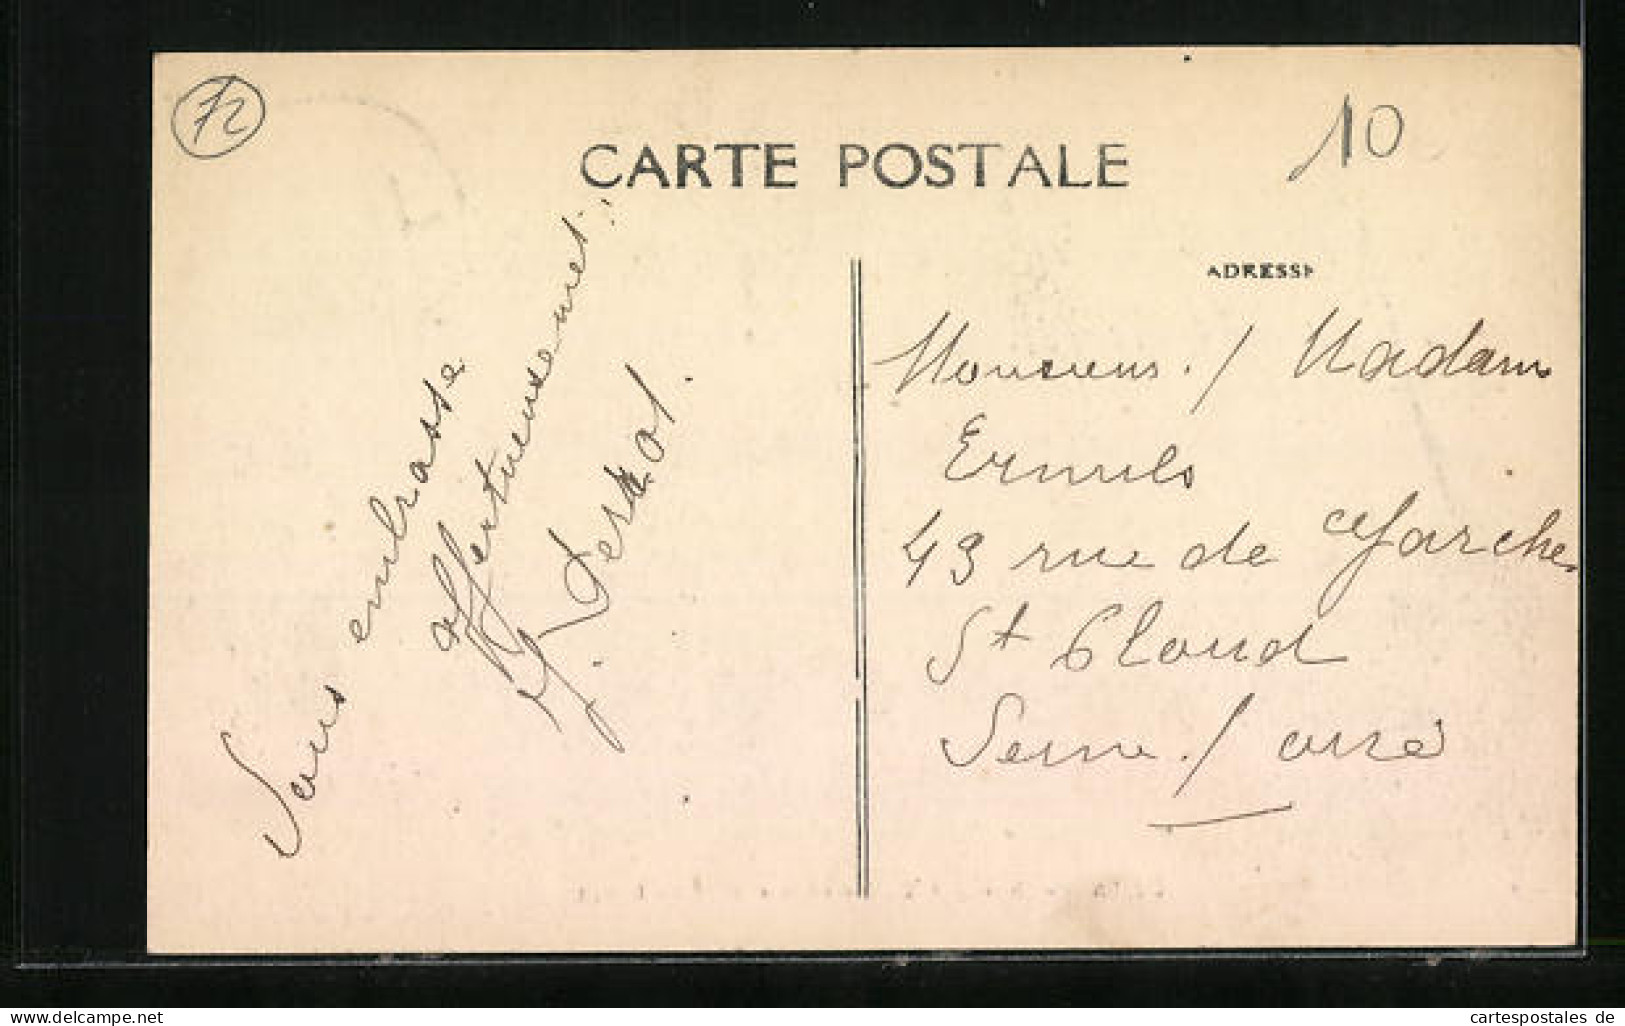 72
10
CARTE POSTALE
ADRESSE
Vous embrasse
affectueusement.
Monsieur./ Madam
Ermils
43 rue de
St Cloud
Seine./ oise
www.delcampe.net
cartespostales de